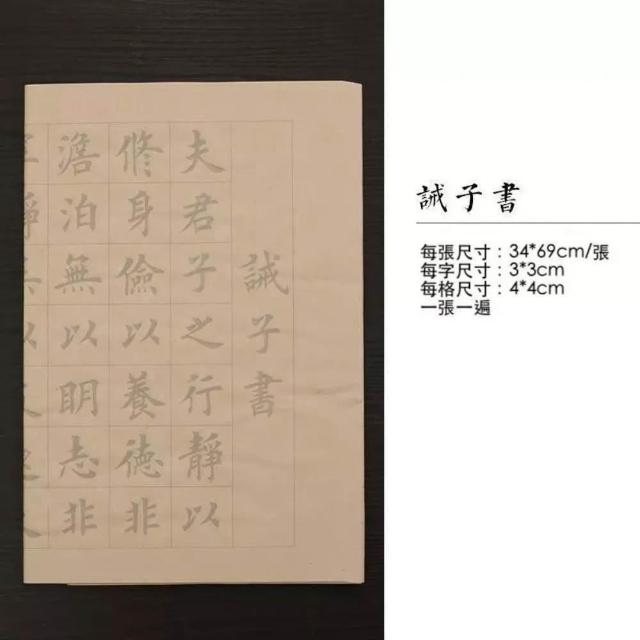 誡子書
夫君子之行靜以
修身儉以養德非
澹泊無以明志非
誡子書
每張尺寸：34*69cm/張
每字尺寸：3*3cm
每格尺寸：4*4cm
一張一遍